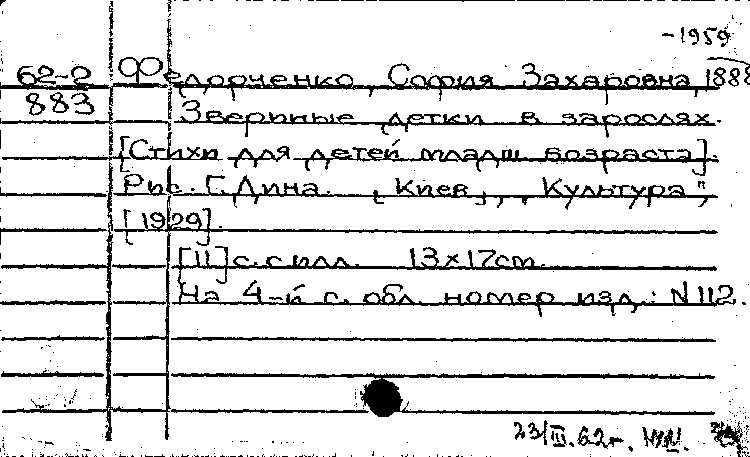 -1959
62-2 Федорченко, София Захаровна, 1888
883 Звериные детки в зарослях.
[Стихи для детей младш. возраста].
Рис. Г. Дина. [Киев], "Культура",
[1929].
[11] с. с илл. 13×17см.
На 4-й с. обл. номер изд.: N 112.
23/III.62г.